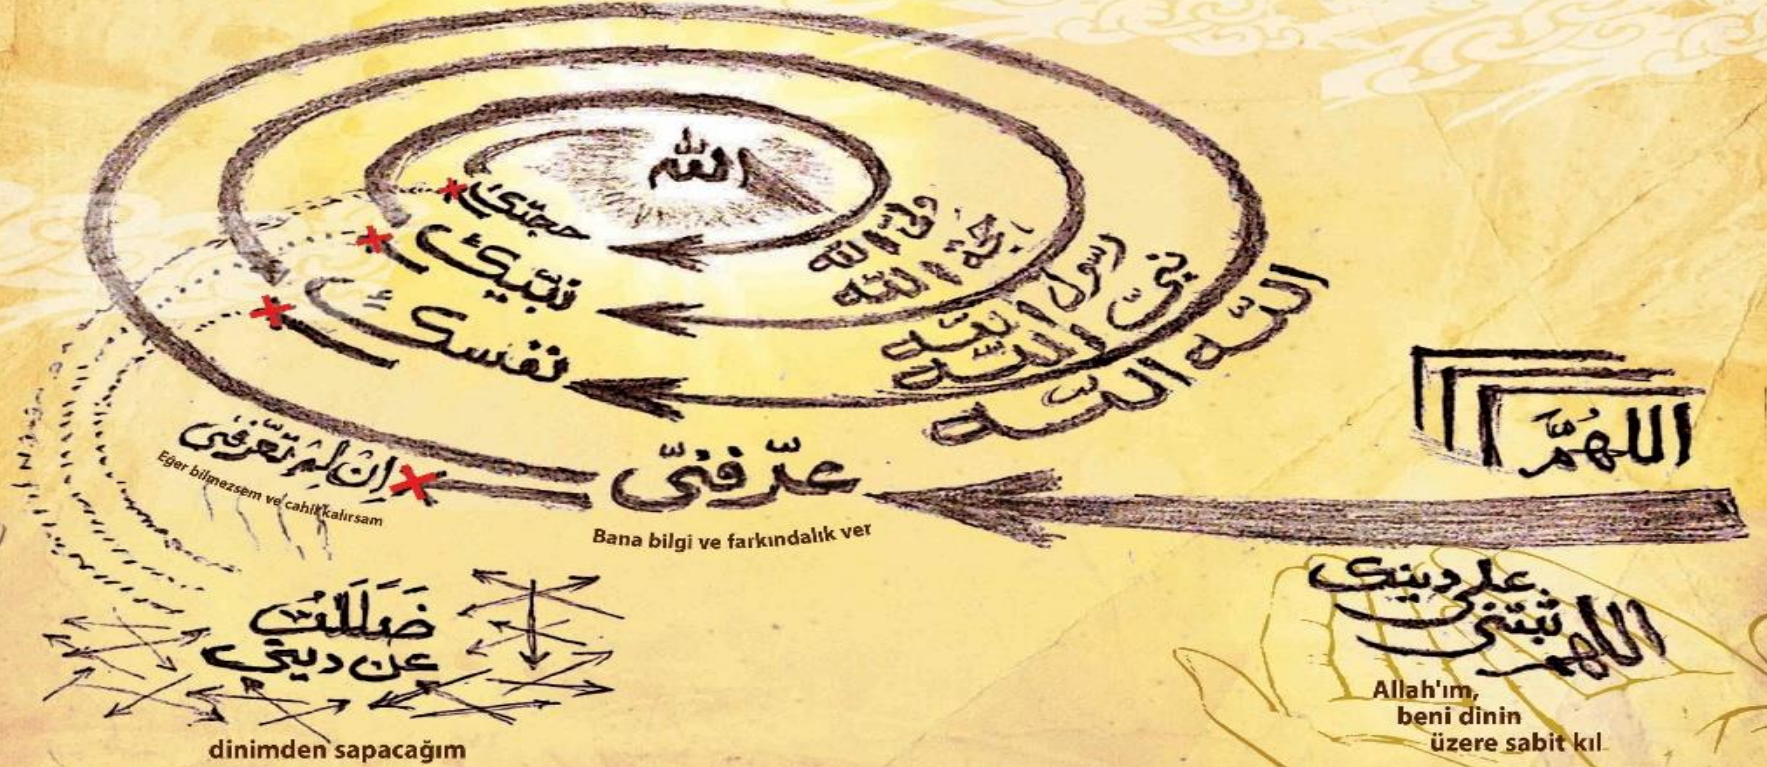 الله
حجتك
نبيك
نفسك
ولي الله
حجة الله
رسول الله
نبي الله
الله
اللهُمَّ
عرّفنيّ
Bana bilgi ve farkındalık ver
اِن لم تعرفني
Eğer bilmezsem ve cahil kalırsam
ضَلَلتُ
عن ديني
dinimden sapacağım
اللهم
ثبتني
على دينك
Allah'ım,
beni dinin
üzere sabit kıl